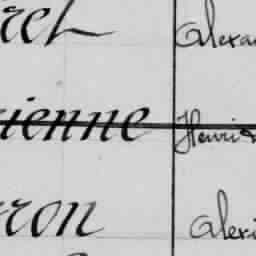 rel Alexa
ienne Henri
ron Alexi